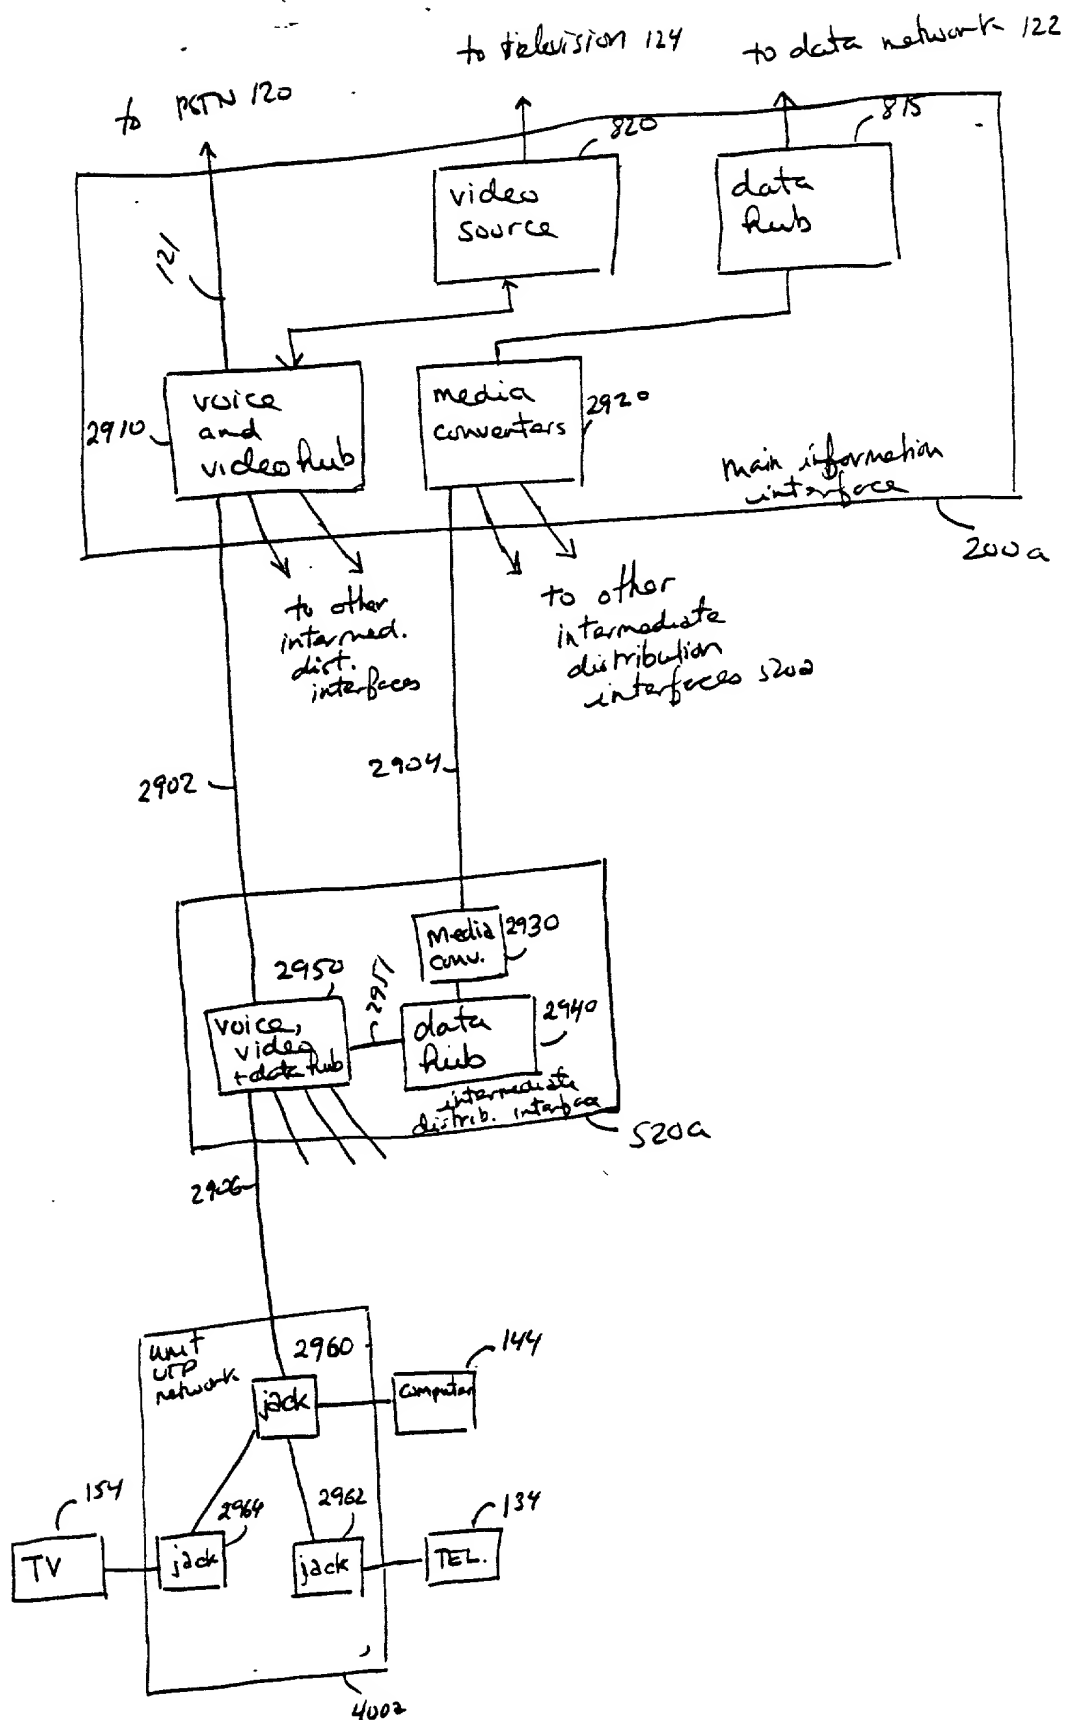 to PSTN 120
to television 124
to data network 122
820
815
video
source
data
hub
121
2910
voice
and
video hub
media
converters
2920
main information
interface
200a
to other
intermed.
dist.
interfaces
to other
intermediate
distribution
interfaces 520a
2902
2904
media
conv.
2930
2950
2951
voice,
video
+ data hub
data
hub
2940
intermediate
distrib. interface
520a
2906
unit
UTP
network
2960
jack
computer
144
154
TV
2964
jack
2962
jack
134
TEL.
400a